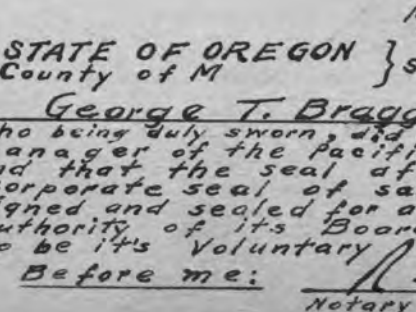 STATE OF OREGON } S
County of M
George T. Bragg
ho being duly sworn, did
anager of the Pacifi
nd that the seal af
orporate seal of sa
igned and sealed for a
uthority of its Boar
o be it's Voluntary
Before me:
Notary